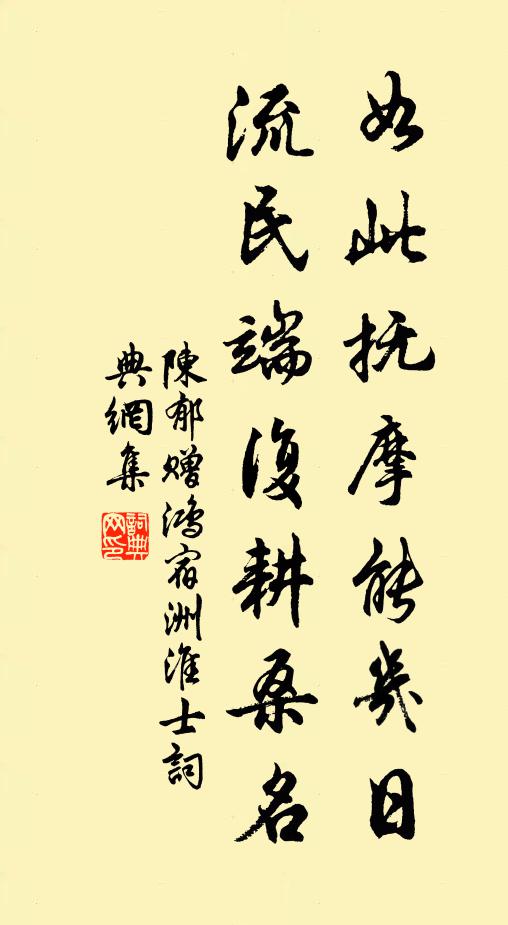 如此抚摩能幾日
流民端復耕桑名
陳郁赠鴻宿洲淮士詞
典網集
詞典
网印